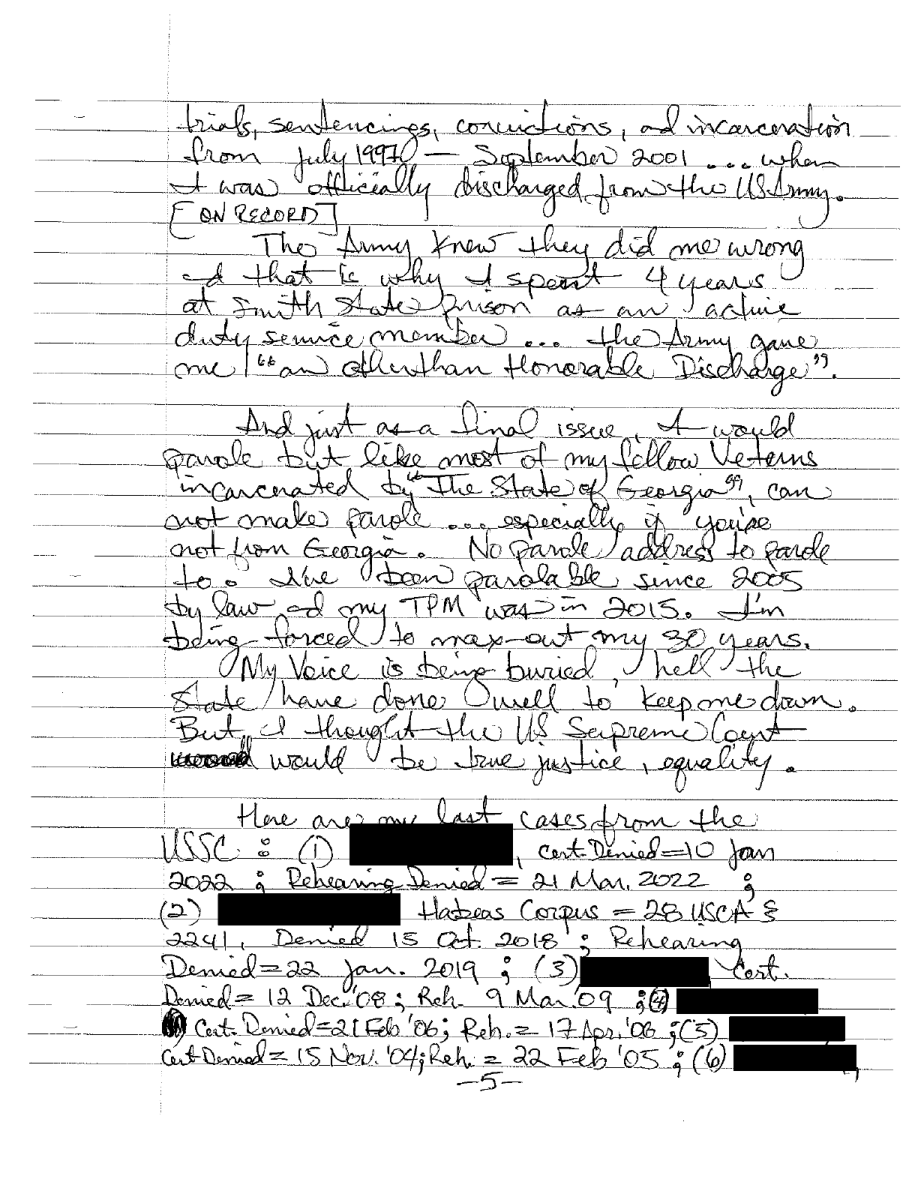 trials, sentencings, convictions, and incarceration
from July 1997 — September 2001 ... when
I was officially discharged from the US Army.
[ON RECORD]
The Army knew they did me wrong
and that is why I spent 4 years
at Smith State Prison as an active
duty service member ... the Army gave
me "an other than Honorable Discharge".
And just as a final issue, I would
parole but like most of my fellow Veterns
incarcerated by "The State of Georgia", can
not make parole ... especially if you're
not from Georgia. No parole address to parole
to. I've been parolable since 2005
by law and my TPM was in 2015. I'm
being forced to max-out my 30 years.
My Voice is being buried, hell the
State have done well to keep me down.
But, I thought the US Supreme Court
would be true justice, equality.
Here are my last cases from the
USSC: (1) , cert. Denied = 10 Jan
2022; Rehearing Denied = 21 Mar. 2022;
(2) Habeas Corpus = 28 USCA §
2241, Denied 15 Oct. 2018; Rehearing
Denied = 22 Jan. 2019; (3) Cert.
Denied = 12 Dec. '08; Reh. 9 Mar. '09; (4)
Cert. Denied = 21 Feb '06; Reh. = 17 Apr. '06; (5)
Cert Denied = 15 Nov. '04; Reh. = 22 Feb '05; (6) ,
-5-